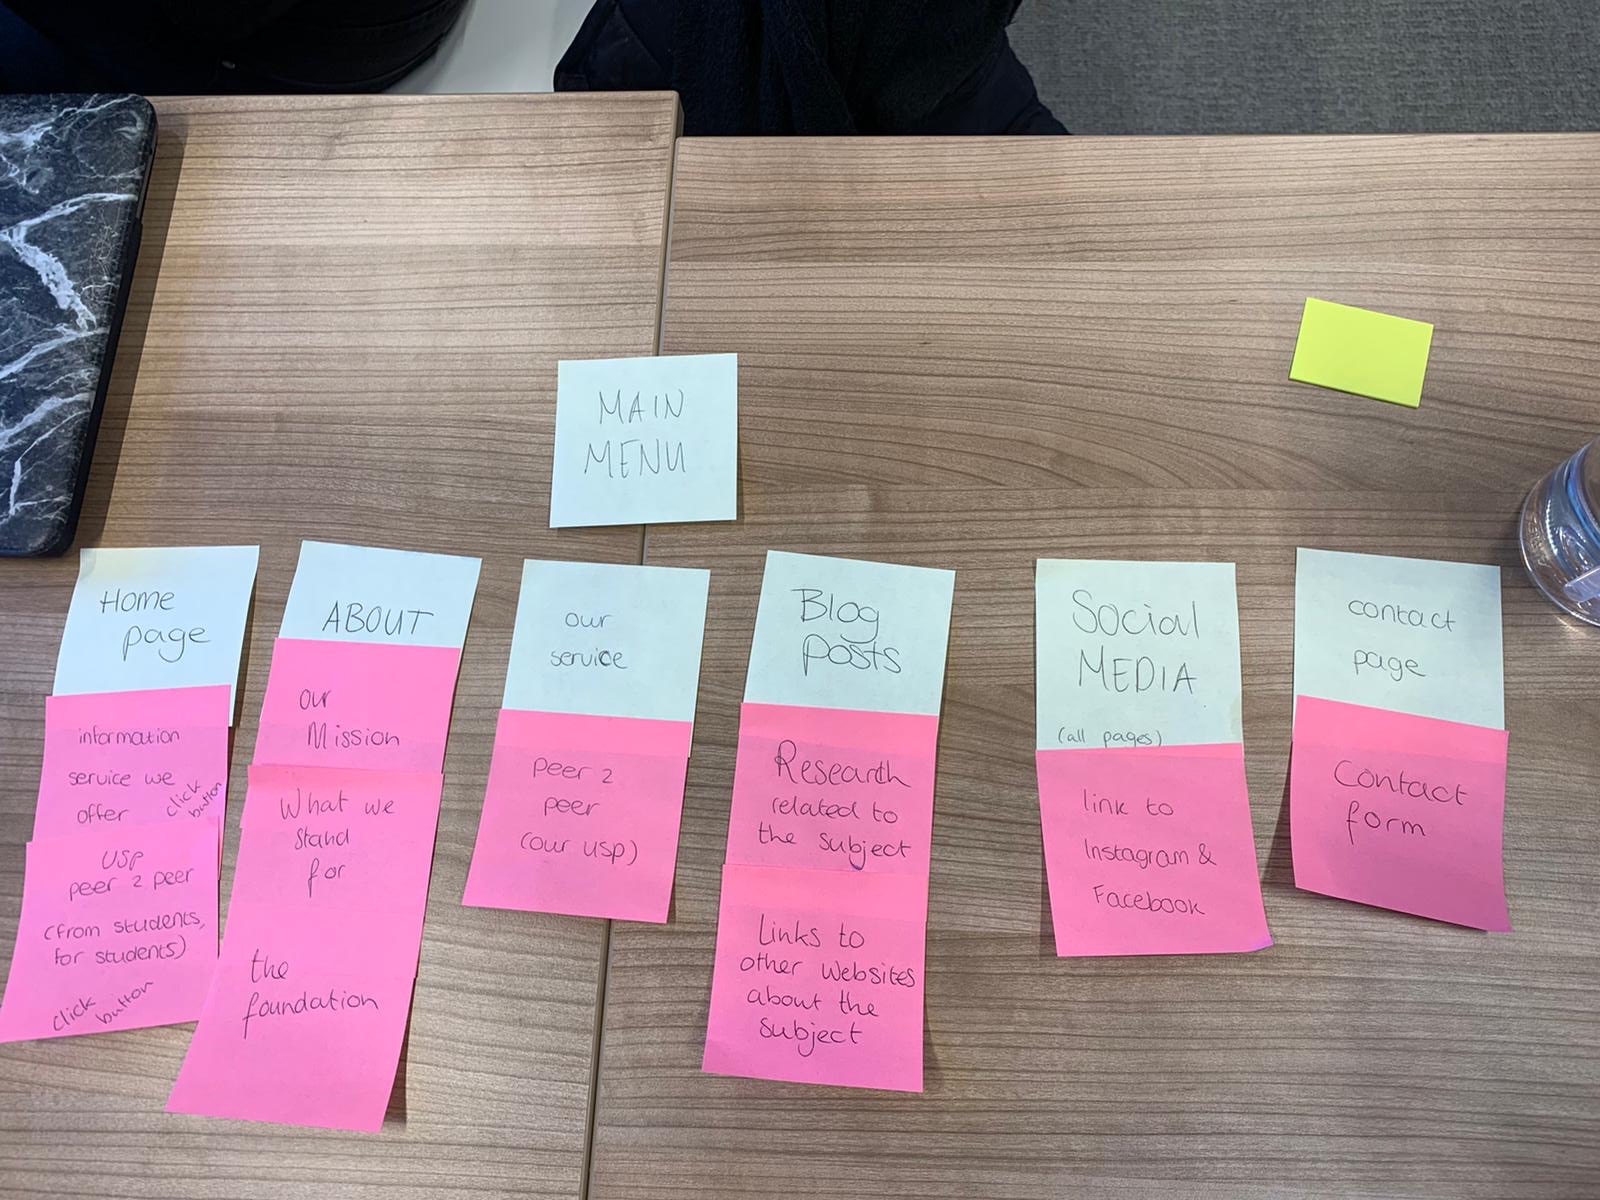 MAIN
MENU
Home
page
information
service we
offer
click
button
USP
peer 2 peer
(from students,
for students)
click
button
ABOUT
our
Mission
What we
Stand
for
the
foundation
our
service
Peer 2
peer
(our usp)
Blog
posts
Research
related to
the subject
Links to
other websites
about the
subject
Social
MEDIA
(all pages)
link to
Instagram &
Facebook
contact
page
Contact
form